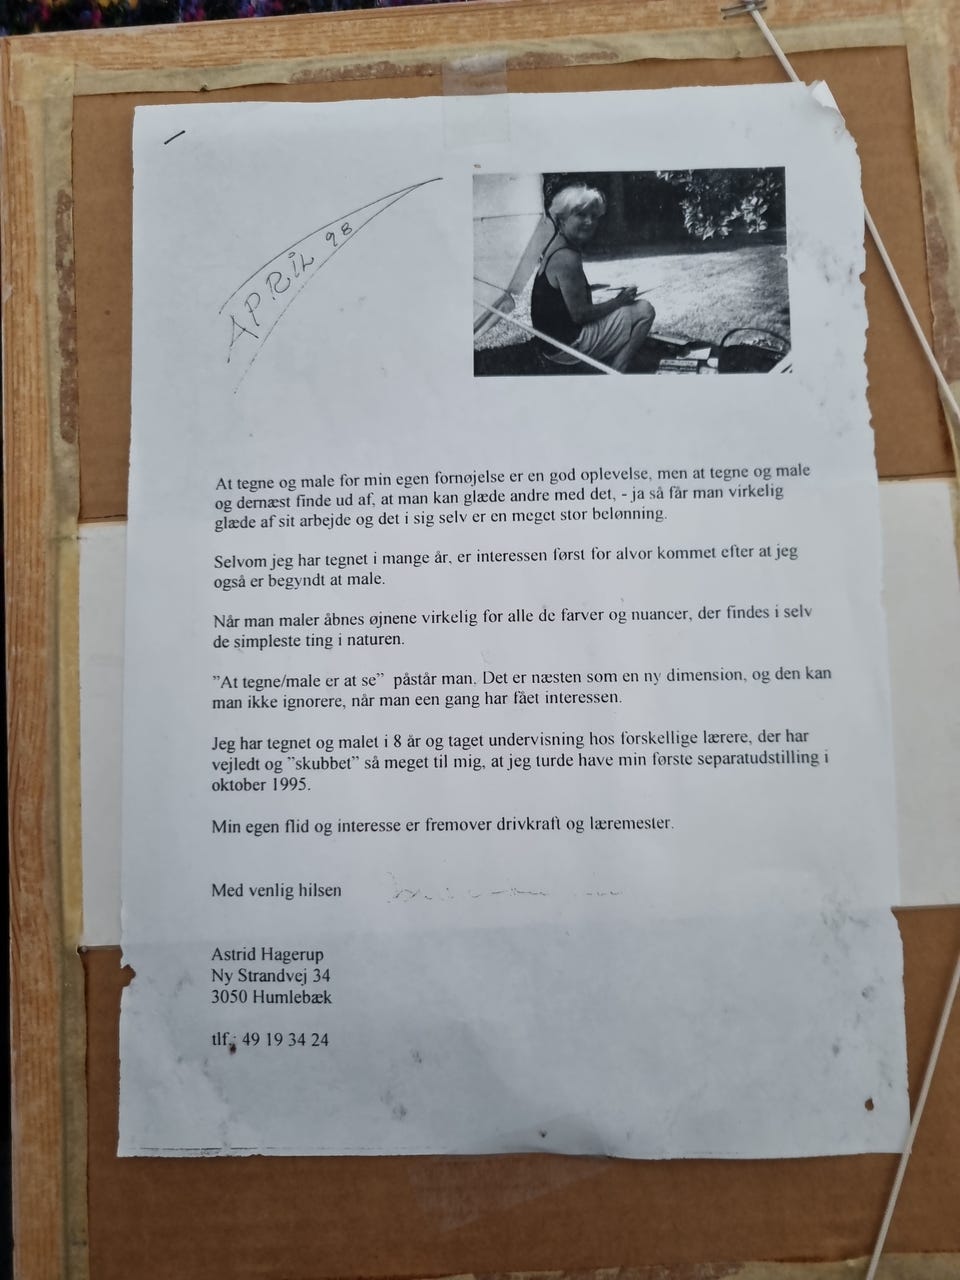 APRIL 98
At tegne og male for min egen fornøjelse er en god oplevelse, men at tegne og male
og dernæst finde ud af, at man kan glæde andre med det, - ja så får man virkelig
glæde af sit arbejde og det i sig selv er en meget stor belønning.
Selvom jeg har tegnet i mange år, er interessen først for alvor kommet efter at jeg
også er begyndt at male.
Når man maler åbnes øjnene virkelig for alle de farver og nuancer, der findes i selv
de simpleste ting i naturen.
”At tegne/male er at se” påstår man. Det er næsten som en ny dimension, og den kan
man ikke ignorere, når man een gang har fået interessen.
Jeg har tegnet og malet i 8 år og taget undervisning hos forskellige lærere, der har
vejledt og ”skubbet” så meget til mig, at jeg turde have min første separatudstilling i
oktober 1995.
Min egen flid og interesse er fremover drivkraft og læremester.
Med venlig hilsen
Astrid Hagerup
Ny Strandvej 34
3050 Humlebæk
tlf.: 49 19 34 24